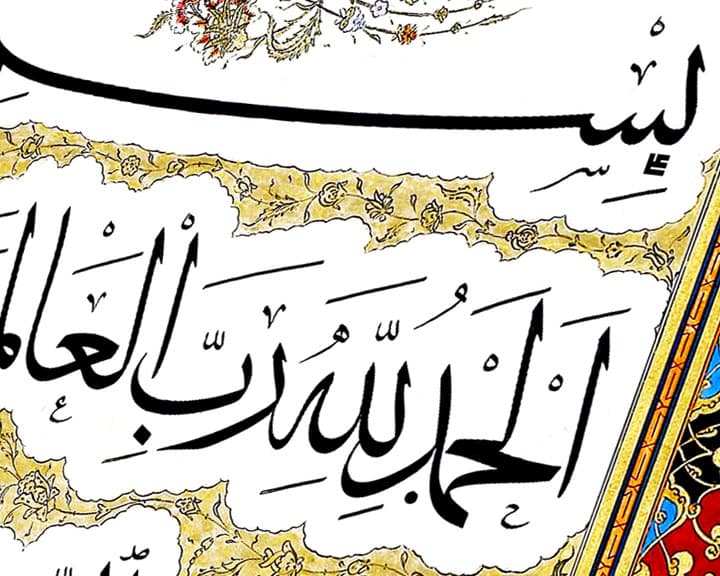 بِسْ
اَلْحَمْدُ لِلّٰهِ رَبِّ الْعَالَم